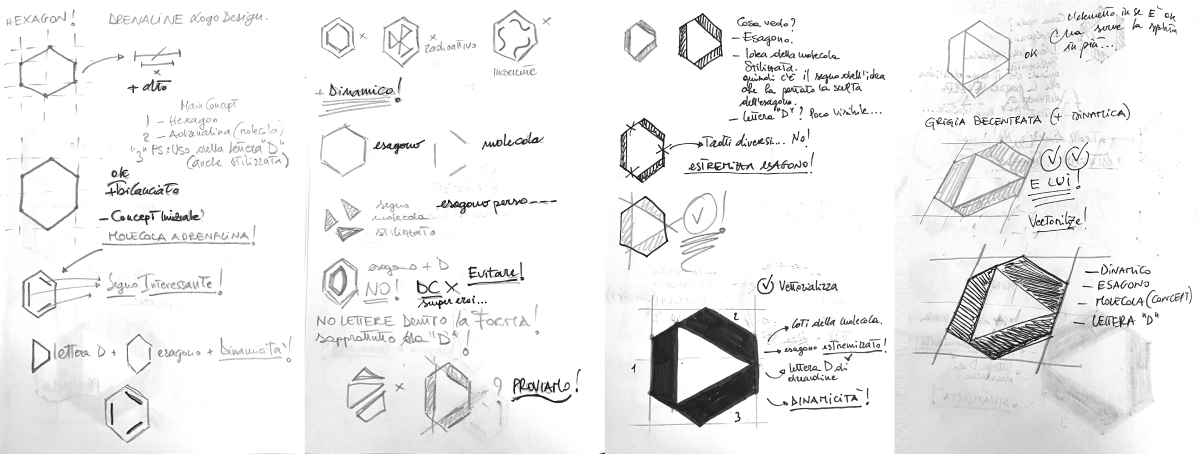 HEXAGON!
ADRENALINE Logo Design.
+ alto
Main Concept
1 - Hexagon
2 - Adrenalina (molecola)
"3" PS: Uso della lettera "D"
(anche stilizzata)
ok
+ bilanciato
- Concept Iniziale?
MOLECOLA ADRENALINA!
Segno Interessante!
lettera D + esagono + Dinamicità!
x
x radioattivo
x
Insenine
+ Dinamico!
esagono
molecola
segno
molecola
stilizzato
esagono perso ---
esagono + D
NO!
DC X
supereroi...
Evitare!
NO LETTERE Dentro la FORMA!
soprattutto la "D"!
x
?
PROVIAMO!
Cosa vedo?
- Esagono.
- Idea della molecola
Stilizzata.
quindi c'è il segno dell'idea
che ha portato la scelta
dell'esagono.
- lettera "D"? Poco visibile...
Tratti diversi... No!
ESTREMIZZA ESAGONO!
!
Vettorializza
1
2
3
Lati della molecola.
esagono estremizzato!
lettera D di
DINAMICITÀ!
ok
L'elemento in se E' ok
Ma serve la spinta
in più...
GRIGLIA DECENTRATA (+ DINAMICA)
E LUI!
Vectorilize!
- DINAMICO
- ESAGONO
- MOLECOLA (CONCEPT)
- LETTERA "D"